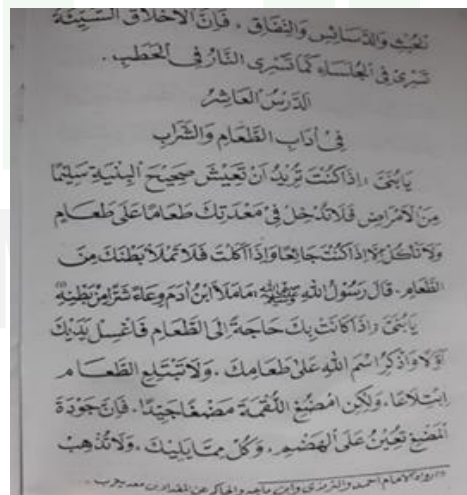 الْخُبْثِ وَالدَّسَائِسِ وَالنِّفَاقِ . فَإِنَّ الْأَخْلَاقَ السَّيِّئَةَ
تَسْرِى فِى الْجُلَسَاءِ كَمَا تَسْرِى النَّارُ فِى الْحَطَبِ .
اَلدَّرْسُ الْعَاشِرُ
فِى أٰدَابِ الطَّعَامِ وَالشَّرَابِ
يَابُنَىَّ ، إِذَا كُنْتَ تُرِيْدُ اَنْ تَعِيْشَ صَحِيْحَ الْبِنْيَةِ سَلِيْمًا
مِنَ الْأَمْرَاضِ فَلَا تُدْخِلْ فِى مَعِدَتِكَ طَعَامًا عَلَى طَعَامٍ
وَلَا تَأْكُلْ إِلَّا إِذَا كُنْتَ جَائِعًا وَإِذَا أَكَلْتَ فَلَا تَمْلَأْ بَطْنَكَ مِنَ
الطَّعَامِ . قَالَ رَسُوْلُ اللهِ ﷺ : مَا مَلَأَ ابْنُ أٰدَمَ وِعَاءً شَرًّا مِنْ بَطْنِهِ
يَابُنَىَّ ، إِذَا كَانَتْ بِكَ حَاجَةٌ إِلَى الطَّعَامِ فَاغْسِلْ يَدَيْكَ
أَوَّلًا وَاذْكُرِ اسْمَ اللهِ عَلَى طَعَامِكَ . وَلَا تَبْتَلِعِ الطَّعَامَ
اِبْتِلَاعًا . وَلٰكِنِ امْضَغِ اللُّقْمَةَ مَضْغًا جَيِّدًا . فَإِنَّ جَوْدَةَ
الْمَضْغِ تُعِيْنُ عَلَى الْهَضْمِ . وَكُلْ مِمَّا يَلِيْكَ . وَلَا تَذْهَبْ
رواه الامام احمد والترمذى وابن ماجه والحاكم عن المقداد بن معد يكرب .